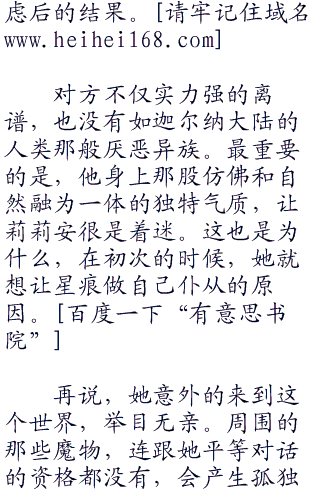 虑后的结果。[请牢记住域名
www.heihei168.com]
对方不仅实力强的离
谱，也没有如迦尔纳大陆的
人类那般厌恶异族。最重要
的是，他身上那股仿佛和自
然融为一体的独特气质，让
莉莉安很是着迷。这也是为
什么，在初次的时候，她就
想让星痕做自己仆从的原
因。[百度一下“有意思书
院”]
再说，她意外的来到这
个世界，举目无亲。周围的
那些魔物，连跟她平等对话
的资格都没有，会产生孤独